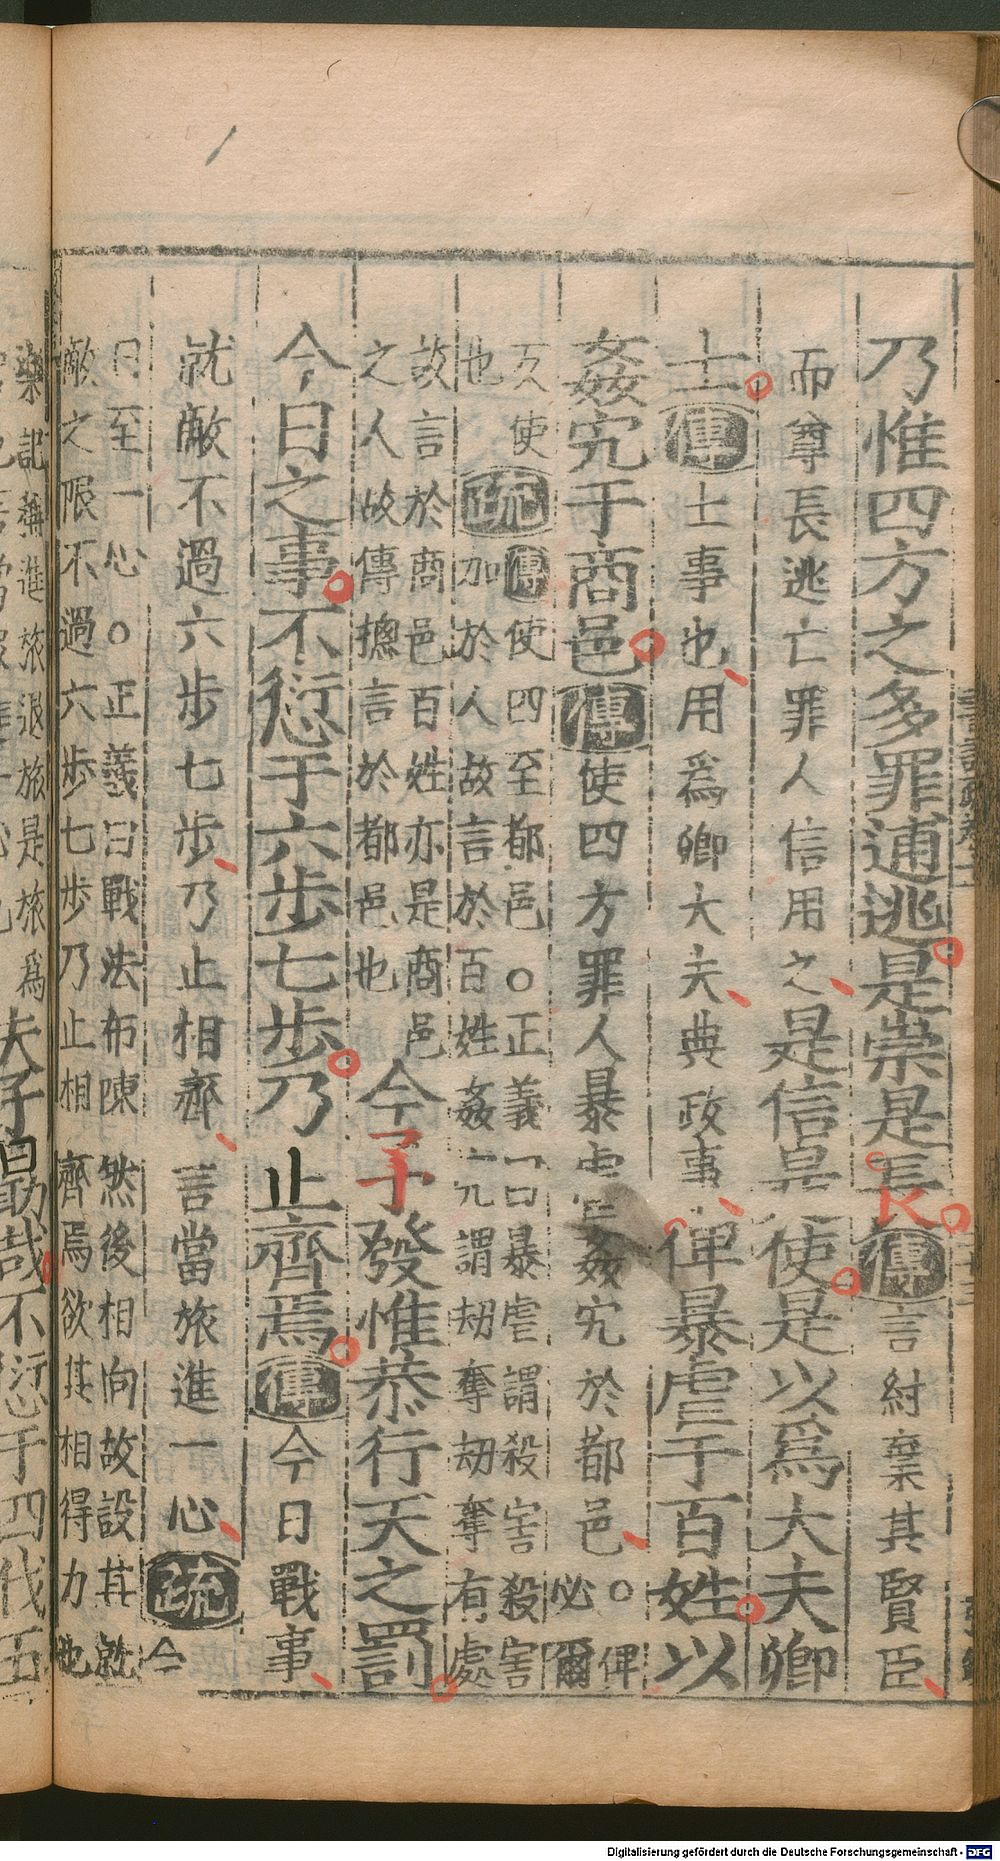 乃惟四方之多罪逋逃是崇是長傳言紂棄其賢臣
而尊長逃亡罪人信用之是信是使是以爲大夫卿
士傳士事也用爲卿大夫典政事俾暴虐于百姓以
姦宄于商邑傳使四方罪人暴虐姦宄於都邑○俾
必爾
反使傳使四至都邑○正義曰暴虐謂殺害殺害
也疏加於人故言於百姓姦宄謂劫奪劫奪有處
故言於商邑百姓亦是商邑
之人故傳摠言於都邑也今予發惟恭行天之罰
今日之事不愆于六步七步乃止齊焉傳今日戰事
就敵不過六步七步乃止相齊言當旅進一心疏今
日至一心○正義曰戰法布陳然後相向故設其就
敵之限不過六步七步乃止相齊焉欲其相得力也
樂記稱進旅退旅是旅爲
夫子勖哉不愆于四伐五
Digitalisierung gefördert durch die Deutsche Forschungsgemeinschaft - DFG